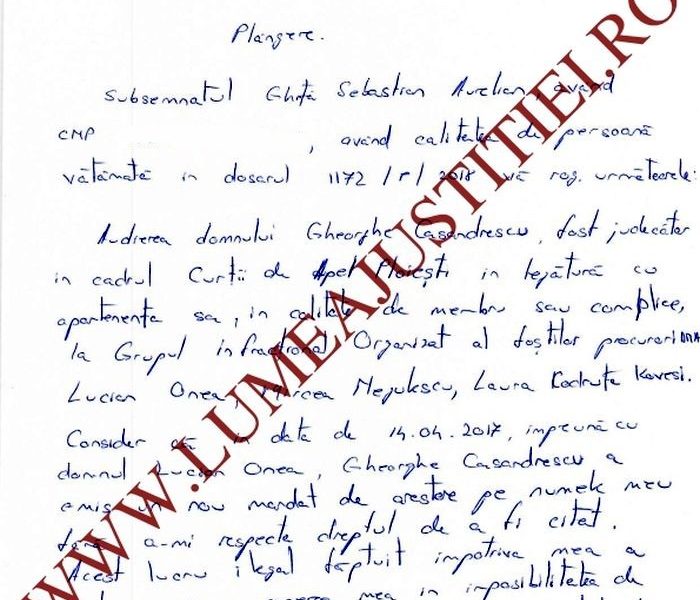 Plângere.
Subsemnatul Ghiță Sebastian Aurelian, având
CNP , având calitatea de persoană
vătămată în dosarul 1172 /P/ 2018 vă rog următoarele:
Audierea domnului Gheorghe Casandrescu, fost judecător
în cadrul Curții de Apel Ploiești în legătură cu
apartenența sa, în calitate de membru sau complice,
la Grupul infracțional Organizat al foștilor procurori DNA
Lucian Onea, Mircea Negulescu, Laura Codruța Kovesi.
Consider că în data de 14.04.2017, împreună cu
domnul Lucian Onea, Gheorghe Casandrescu a
emis un nou mandat de arestare pe numele meu
fără a-mi respecta dreptul de a fi citat.
Acest lucru ilegal făptuit împotriva mea a
mea în imposibilitatea de
WWW.LUMEAJUSTITIEI.RO